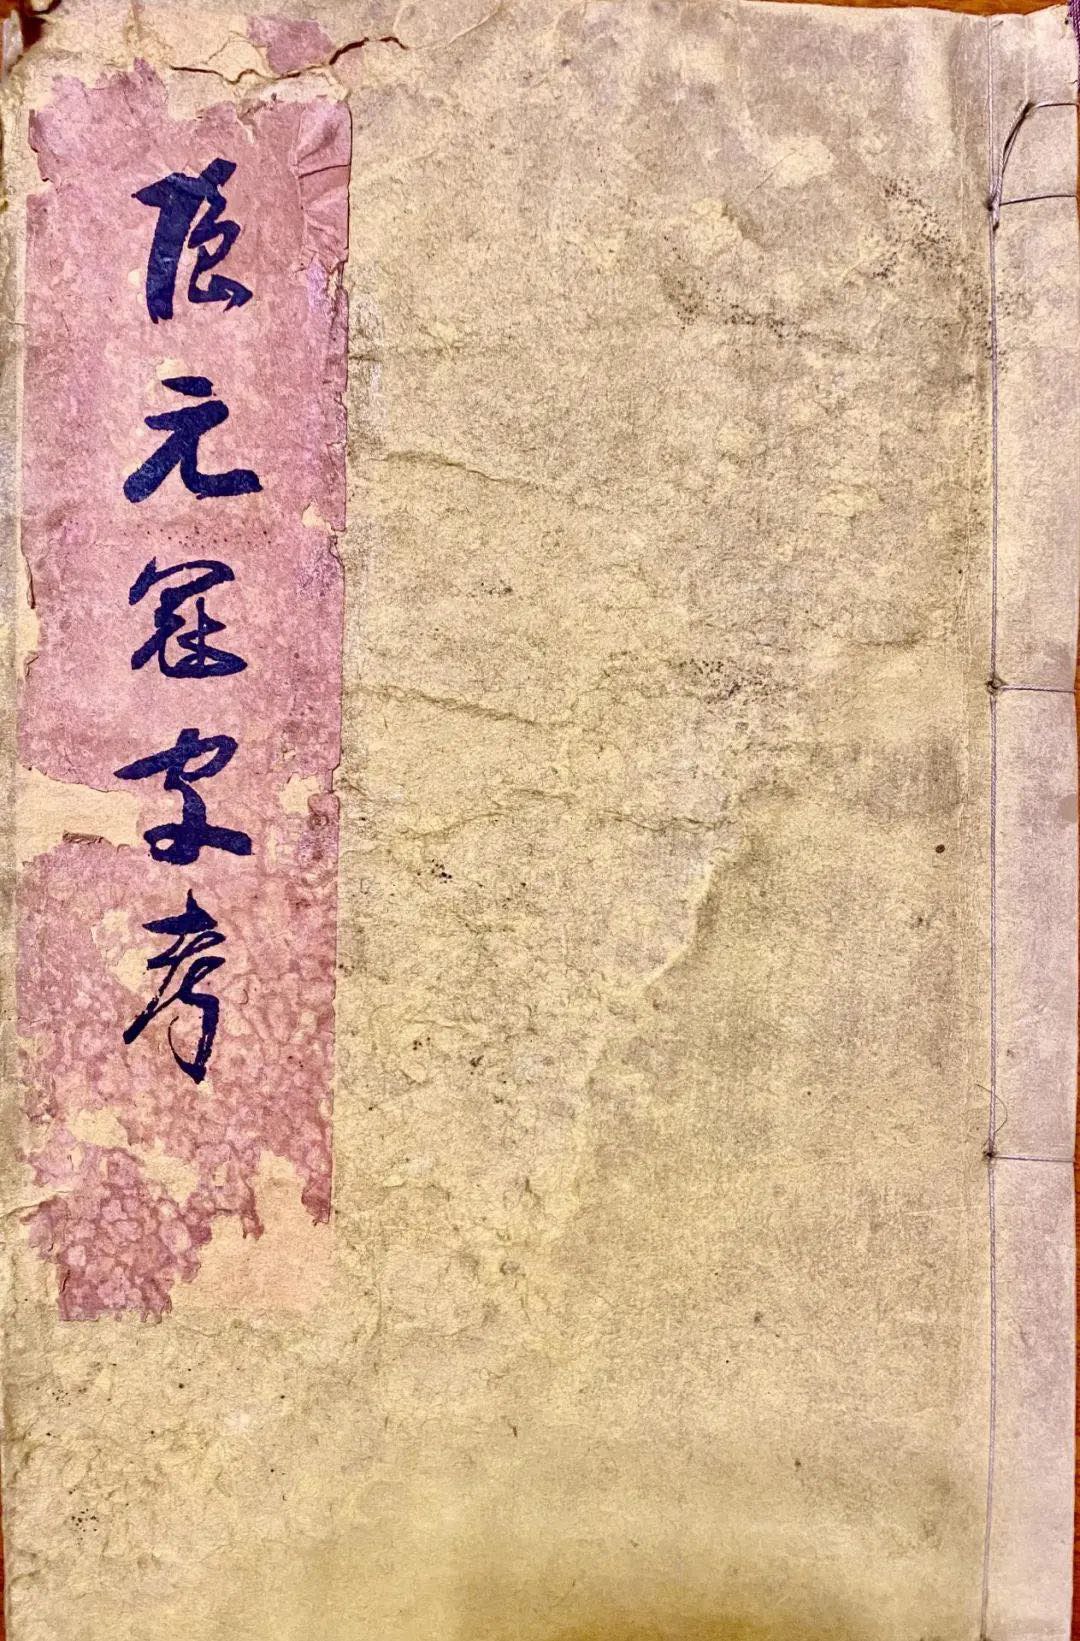 隐元冠字考